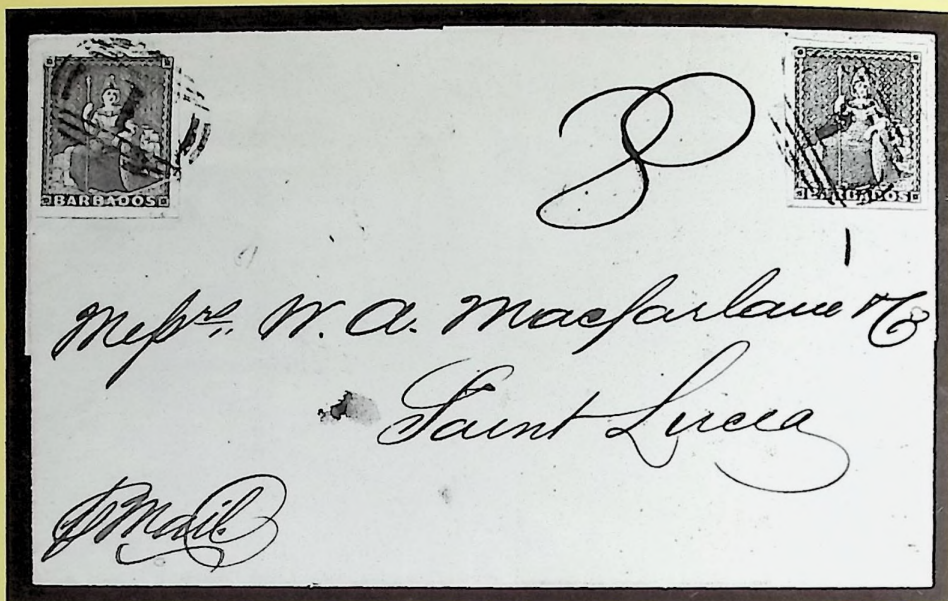 BARBADOS
BARBADOS
8
Messrs. W. A. Macfarlane & Co
Saint Lucia
P Mail.